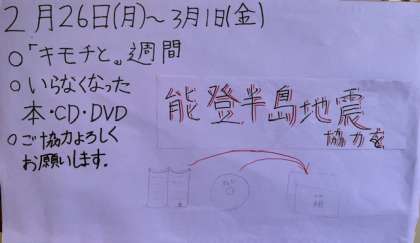 2月26日(月)～3月1日(金)
○「キモチと。」週間
○いらなくなった
本・CD・DVD
○ご協力よろしく
お願いします。
能登半島地震
協力を